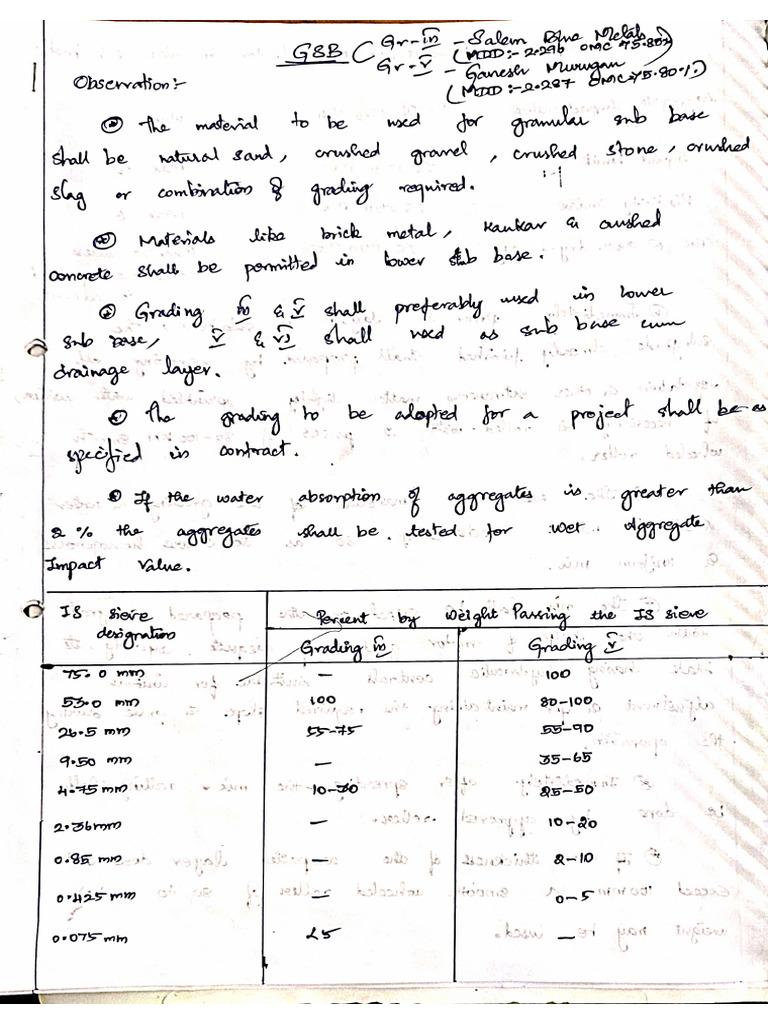 GSB (Gr-III - Salem Blue Metals
(MDD:-2.296 OMC 75.80%)
Gr-V - Ganesh Murugan
(MDD:-2.287 OMC 75.80%)
Observation:-
The material to be used for granular sub base
shall be natural sand, crushed gravel, crushed stone, crushed
slag or combination of grading required.
Materials like brick metal, Kankar & crushed
concrete shall be permitted in lower sub base.
Grading III & IV shall preferably used in lower
sub base, V & VI shall used as sub base cum
drainage layer.
The grading to be adopted for a project shall be as
specified in contract.
If the water absorption of aggregates is greater than
2 % the aggregates shall be tested for wet Aggregate
Impact Value.
IS sieve designation | Percent by Weight Passing the IS sieve
Grading III | Grading V
75.0 mm | — | 100
53.0 mm | 100 | 80-100
26.5 mm | 55-75 | 55-90
9.50 mm | — | 35-65
4.75 mm | 10-30 | 25-50
2.36 mm | — | 10-20
0.85 mm | — | 2-10
0.425 mm | — | 0-5
0.075 mm | <5 | —